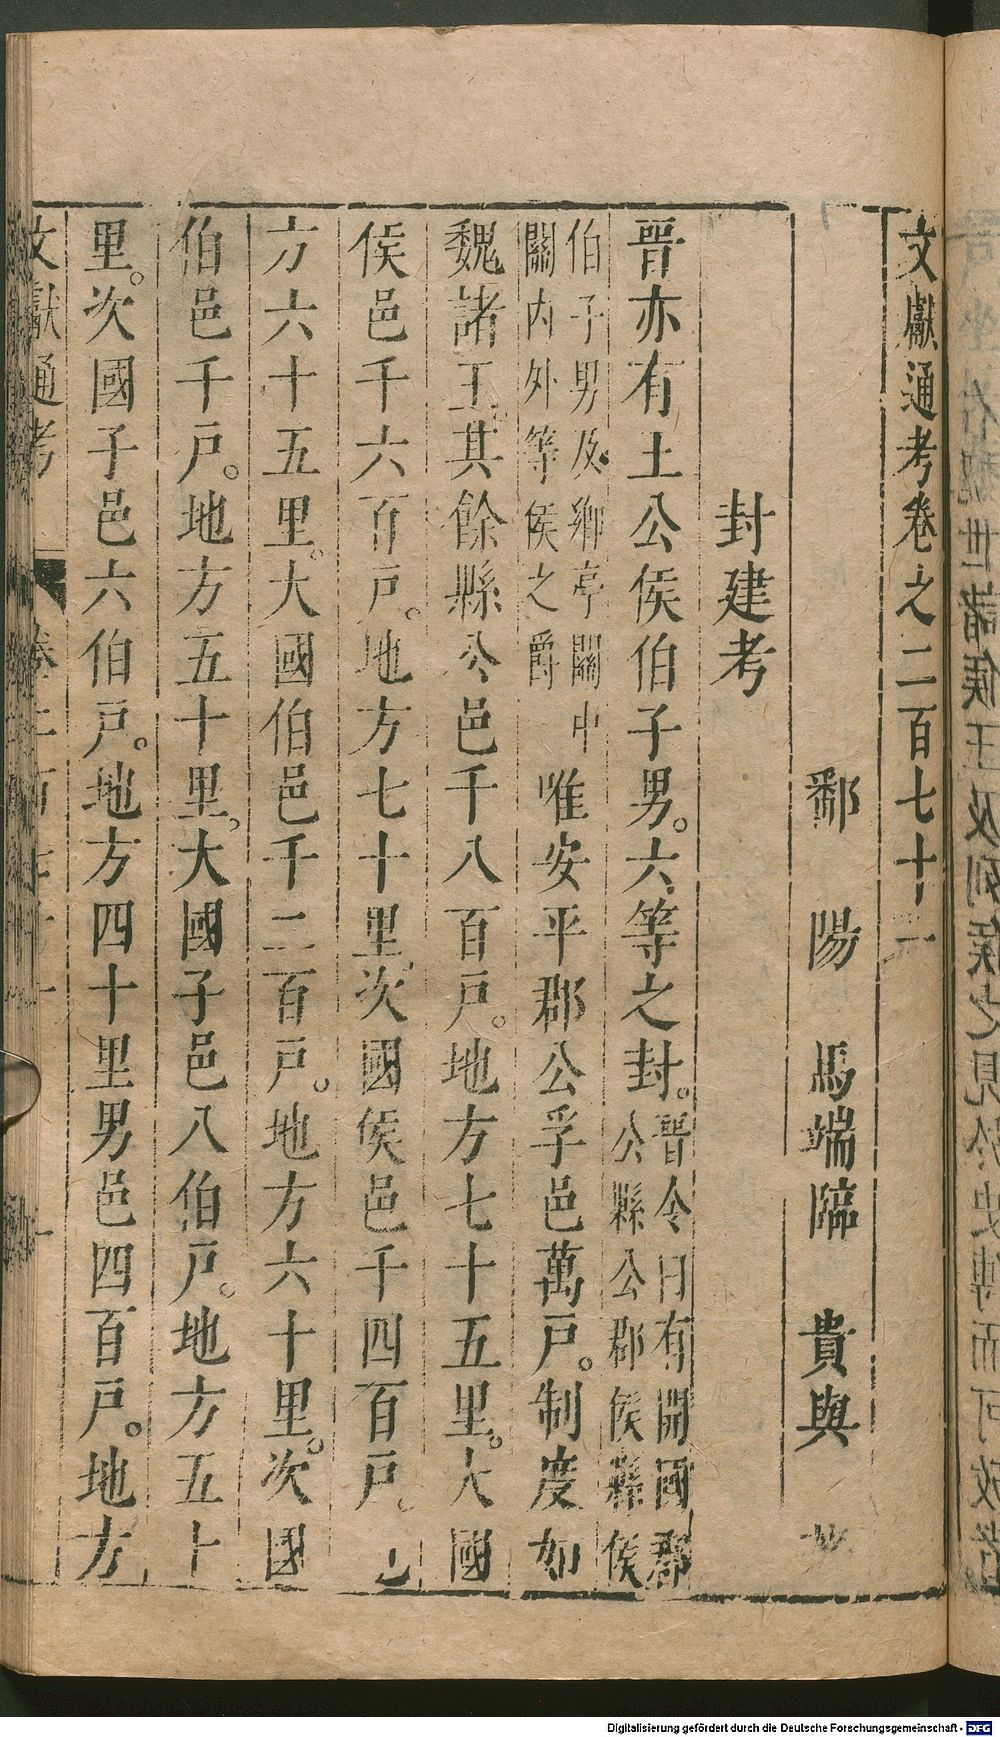 文獻通考卷之二百七十一
鄱陽馬端臨貴與著
封建考
晉亦有土公侯伯子男。六等之封。晉令曰有開國郡公縣公郡侯縣侯
伯子男及鄉亭關中關内外等侯之爵唯安平郡公孚邑萬戸。制度如
魏諸王。其餘縣公邑千八百戸。地方七十五里。大國
侯邑千六百戸。地方七十里。次國侯邑千四百戸。地
方六十五里。大國伯邑千二百戸。地方六十里。次國
伯邑千戸。地方五十里。大國子邑八伯戸。地方五十
里。次國子邑六伯戸。地方四十里男邑四百戸。地方
文獻通考
卷二百七十一
一
Digitalisierung gefördert durch die Deutsche Forschungsgemeinschaft - DFG